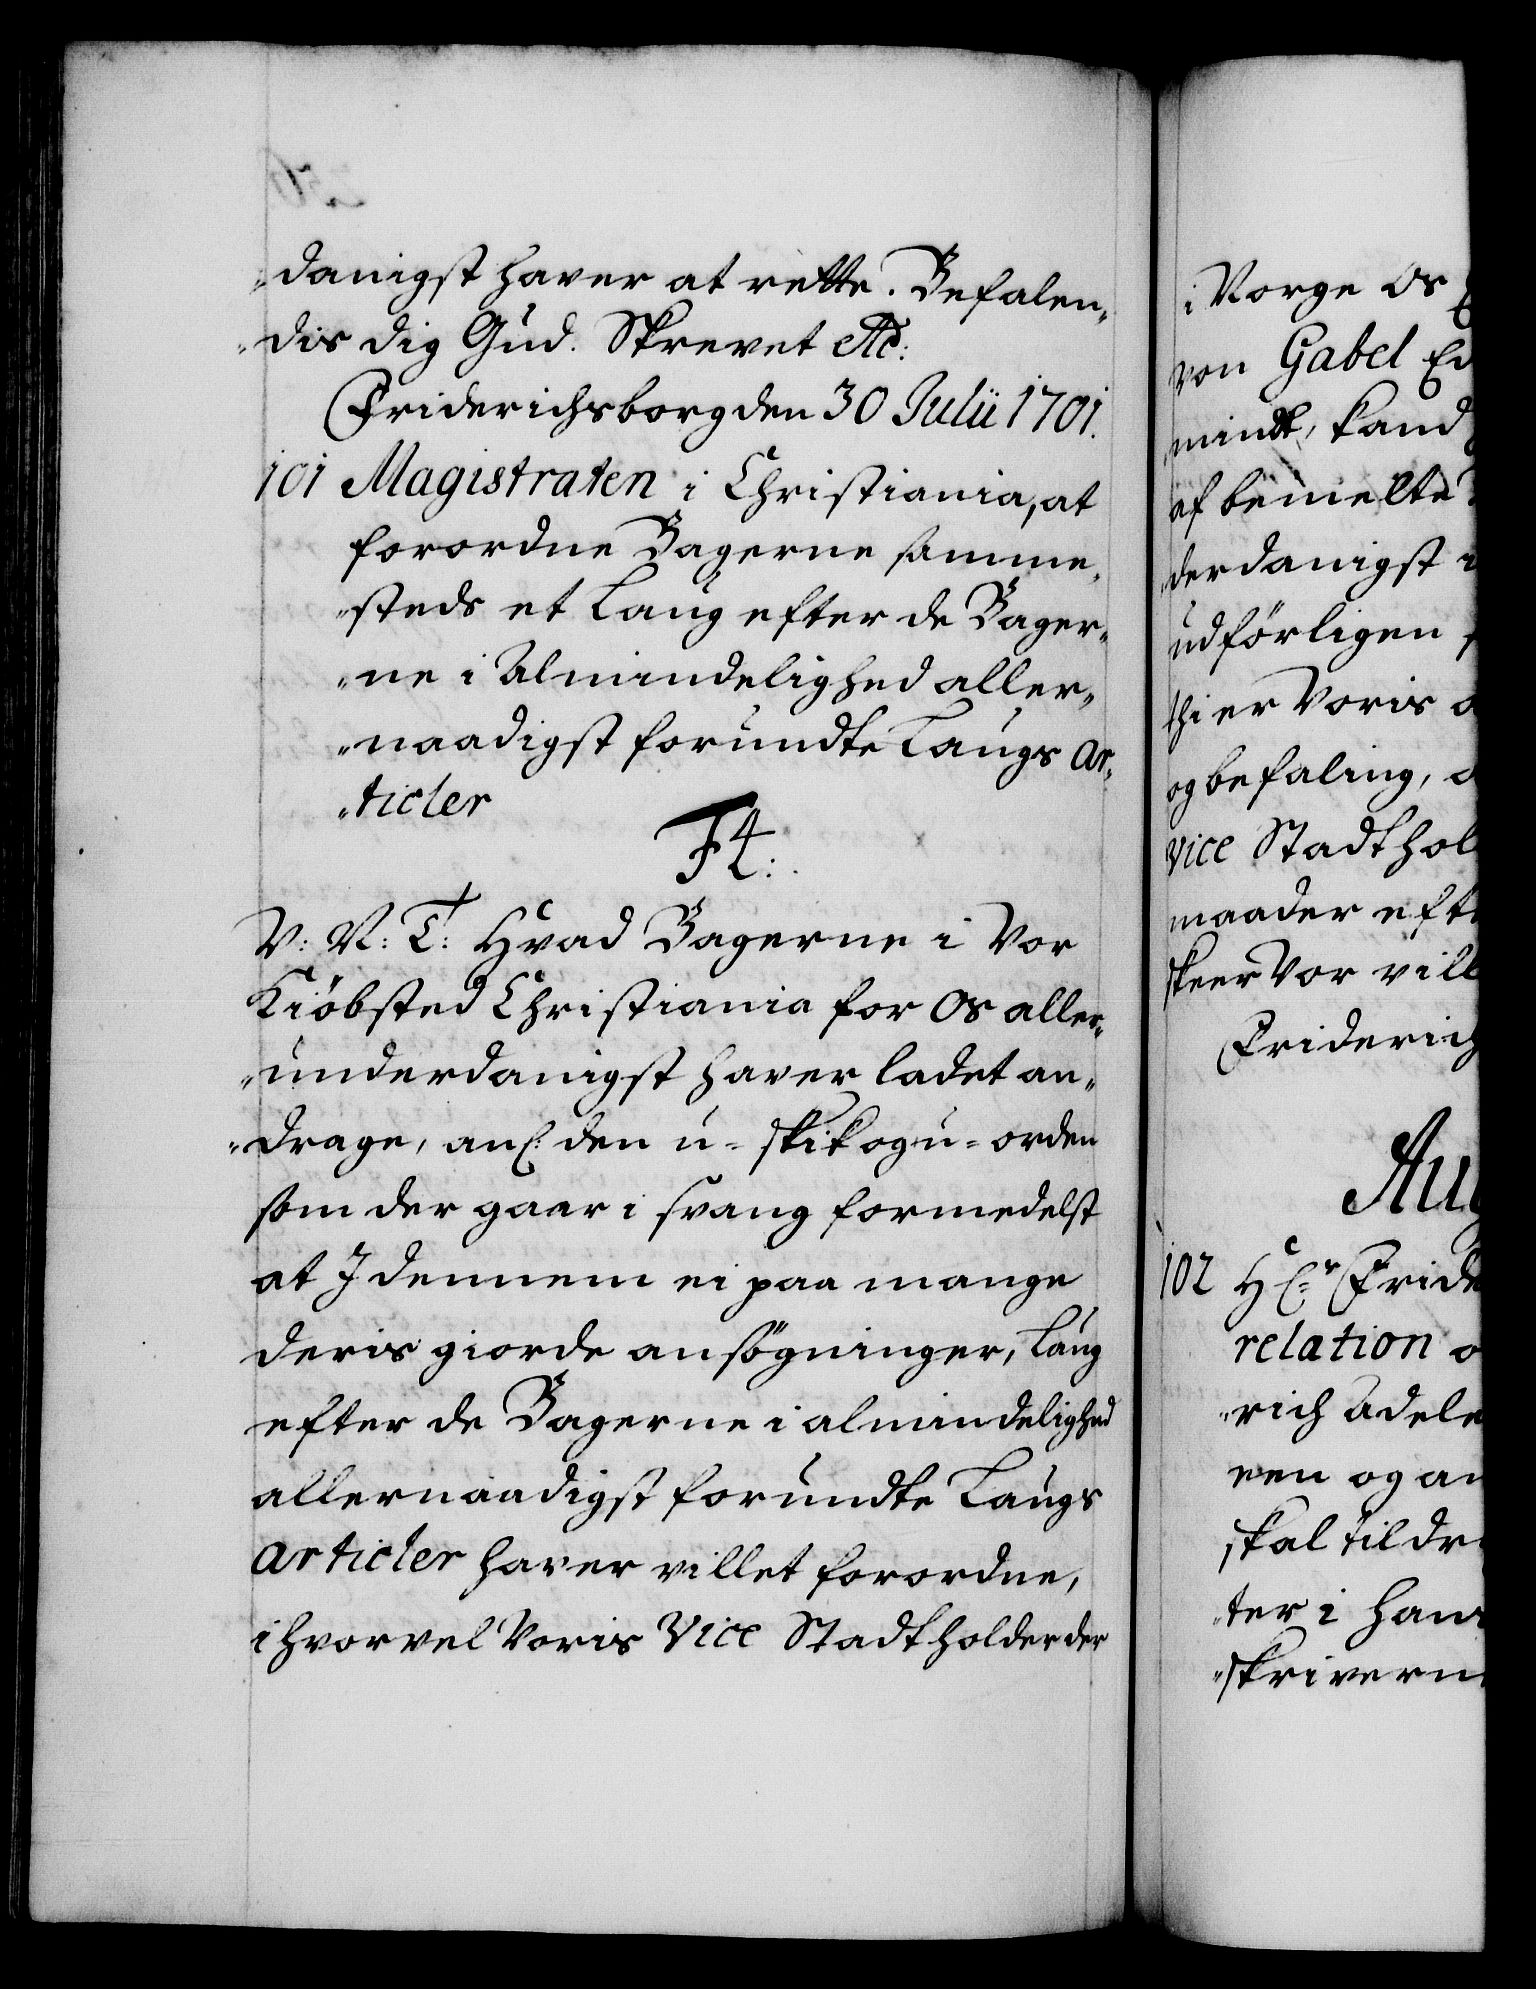 danigst haver at rette. Befalen„
„dis dig Gud. Skrevet etc:
Friderichsborg den 30 Julii 1701.
101 Magistraten i Christiania, at
forordne Bagerne samme„
„steds et Laug efter de Bager„
„ne i Almindelighed aller„
„naadigst forundte Laugs Ar„
„ticler
F4:
V: V: T: Hvad Bagerne i Vor
Kiöbsted Christiania for Os aller„
„underdanigst haver ladet an„
„drage, anl: den u-skik og u-orden
som der gaar i svang formedelst
at I dennem ei paa mange
deris giorde ansögninger, Laug
efter de Bagerne i almindelighed
allernaadigst forundte Laugs
articler haver villet forordne,
ihvorvel Voris Vice Stadtholder der
i Norge Os
von Gabel
mindt, kand
af bemelte
„derdanigst
udförligen
thi er Voris
og befaling,
Vice Stadthol
maader eft
skeer Vor vill
Friderich
Aug
102 Hr Fride
relation
„rich Adele
een og an
skal tildr
„ter i hans
„skrivern